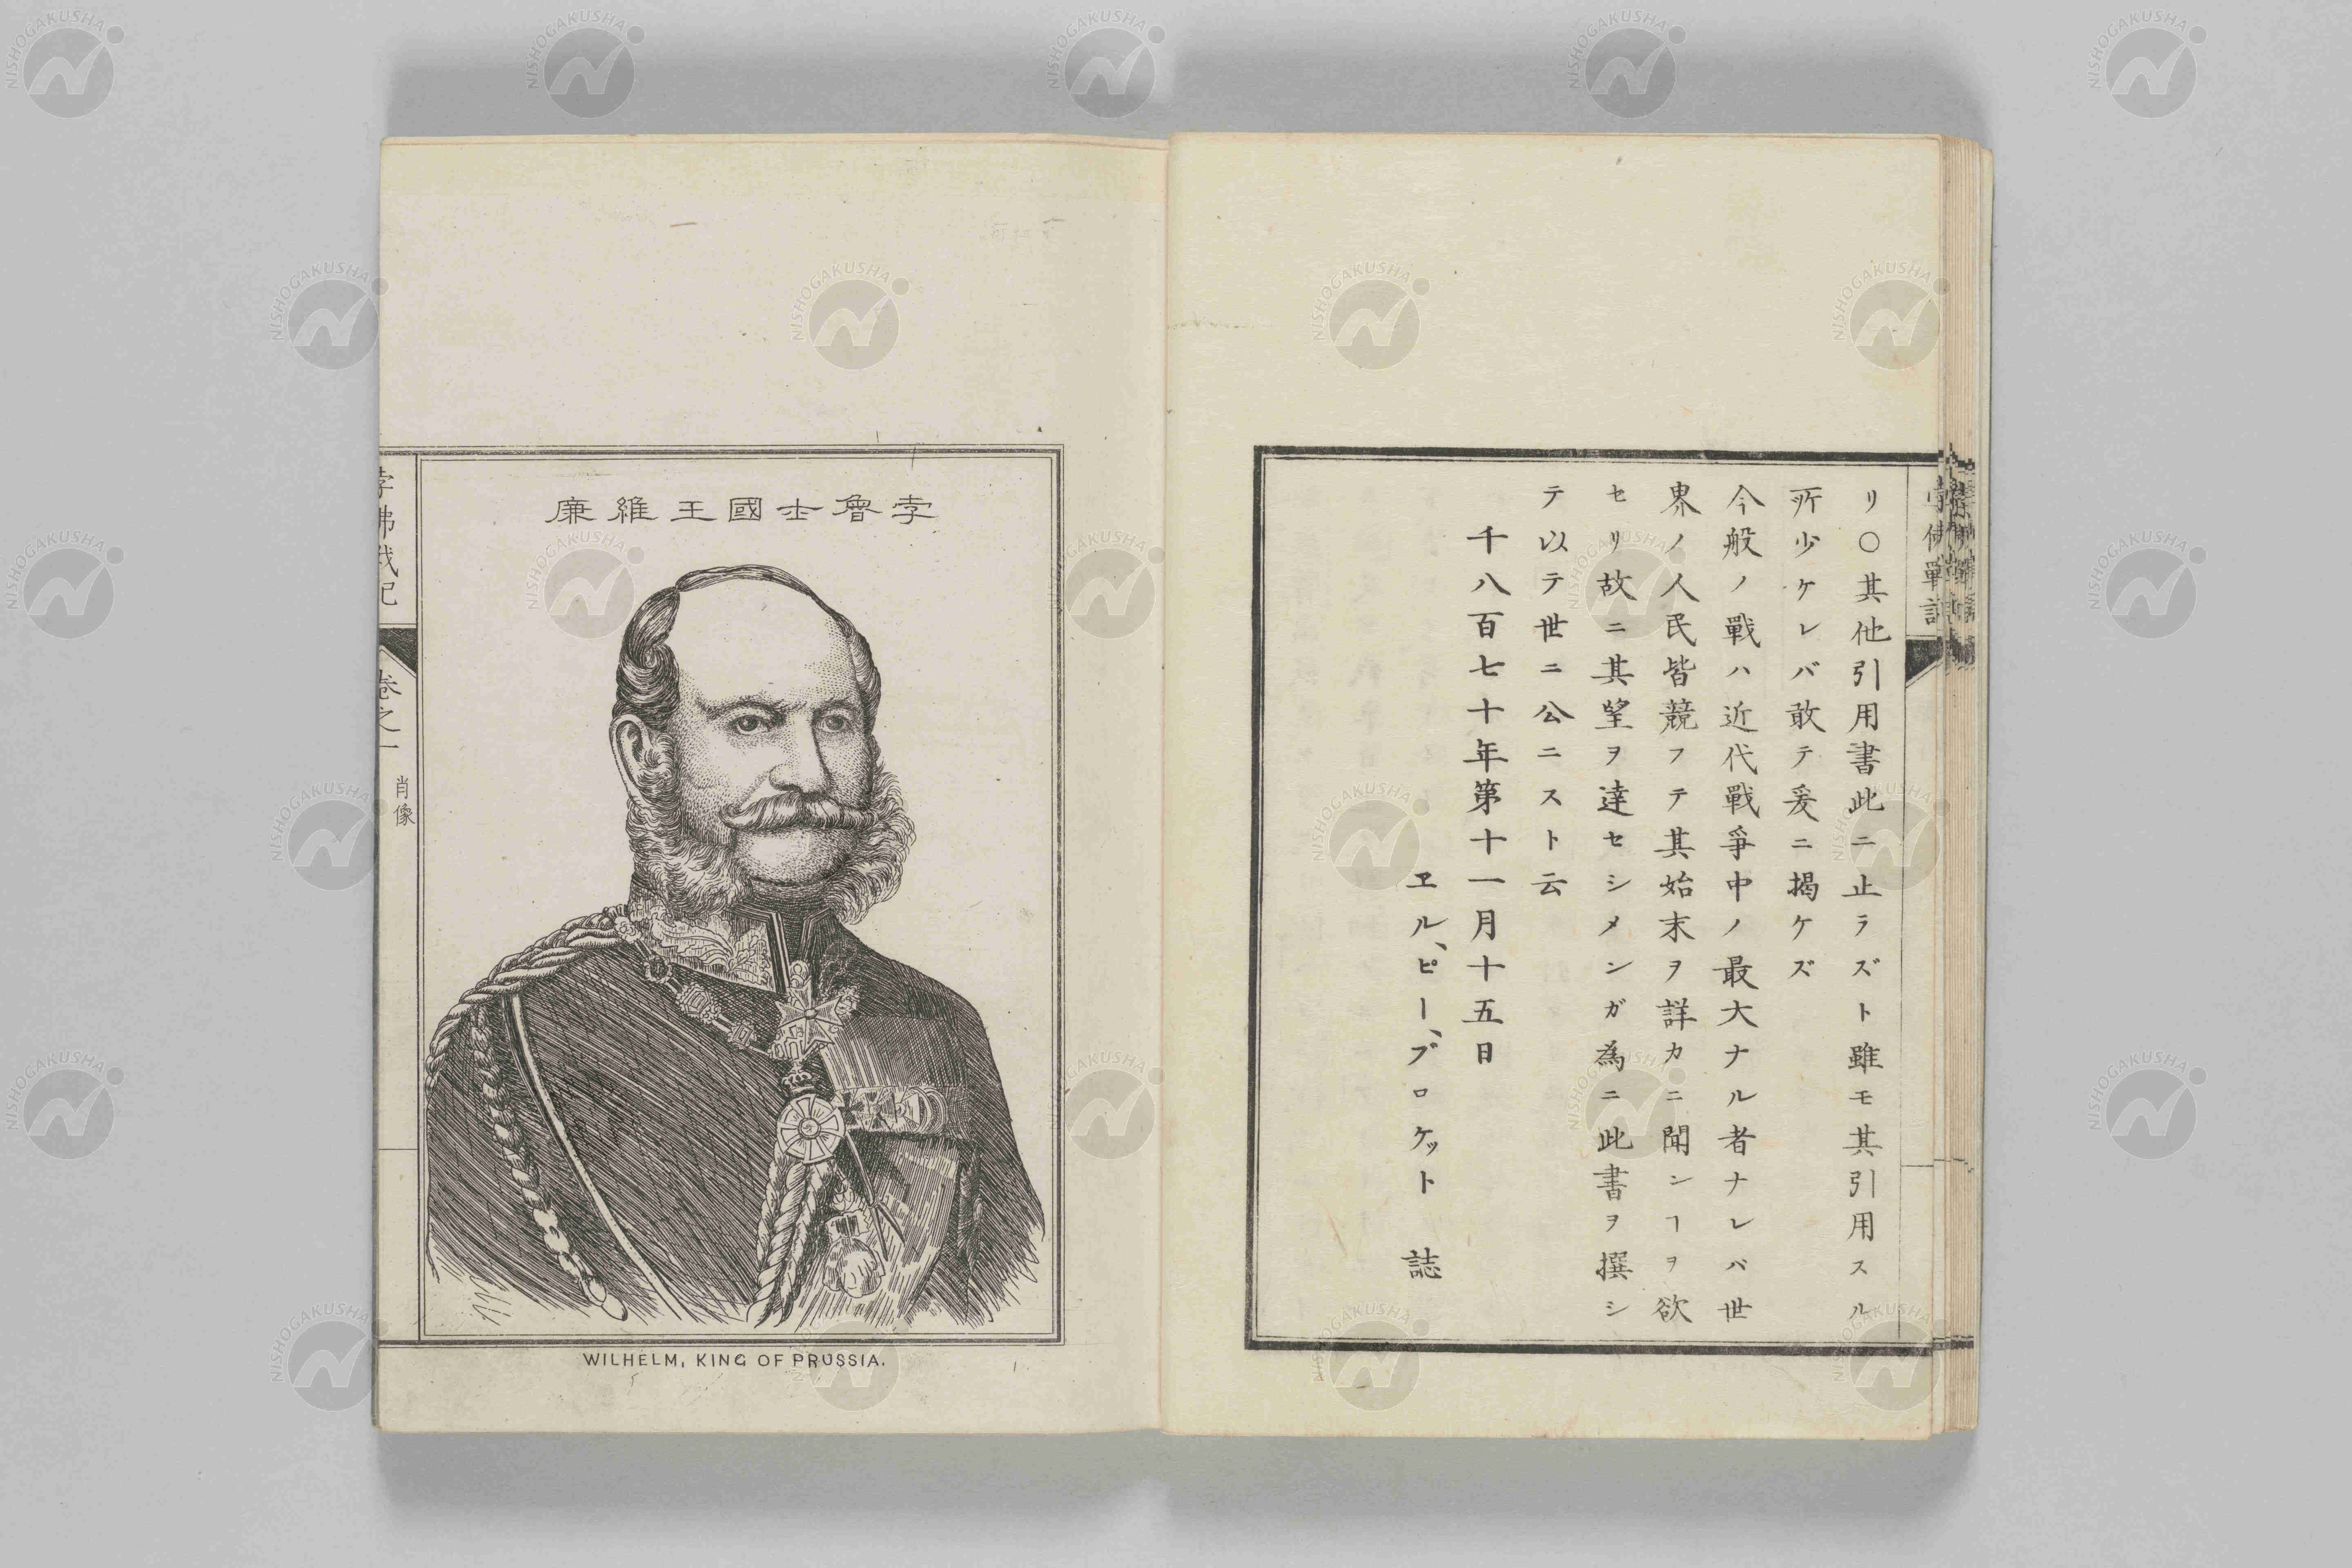 リ〇其他引用書此ニ止ラズト雖モ其引用スル
所少ケレバ敢テ爰ニ揭ケズ
今般ノ戰ハ近代戰爭中ノ最大ナル者ナレバ世
界ノ人民皆競フテ其始末ヲ詳カニ聞ンヿヲ欲
セリ故ニ其望ヲ達セシメンガ為ニ此書ヲ撰シ
テ以テ世ニ公ニスト云
千八百七十年第十一月十五日
ヱル、ピー、ブロケット 誌
孛魯士國王維廉
WILHELM, KING OF PRUSSIA.
孛佛戰記
卷之一
肖像
NISHOGAKUSHA